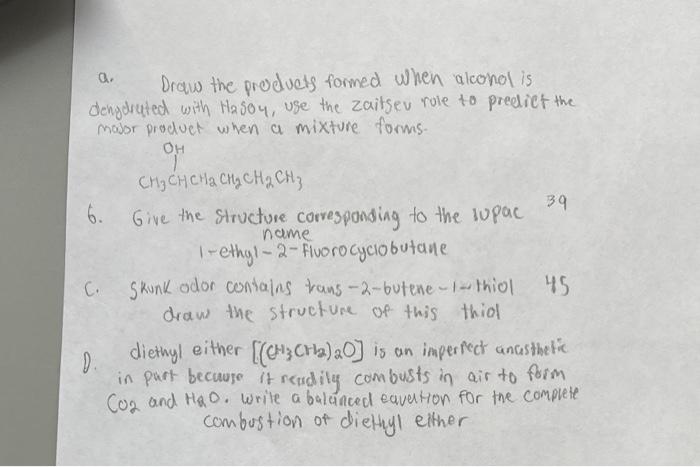 a. Draw the products formed when alcohol is
dehydrated with H2SO4, use the zaitsev role to predict the
major product when a mixture forms.
OH
CH3CHCH2CH2CH2CH3
6. Give the structure corresponding to the IUPAC 39
name
1-ethyl-2-fluorocyclobutane
C. Skunk odor contains trans-2-butene-1-thiol 45
draw the structure of this thiol
D. diethyl either [(CH3CH2)2O] is an imperfect anasthetic
in part because it readily combusts in air to form
CO2 and H2O. write a balanced eavation for the complete
combustion of diethyl either